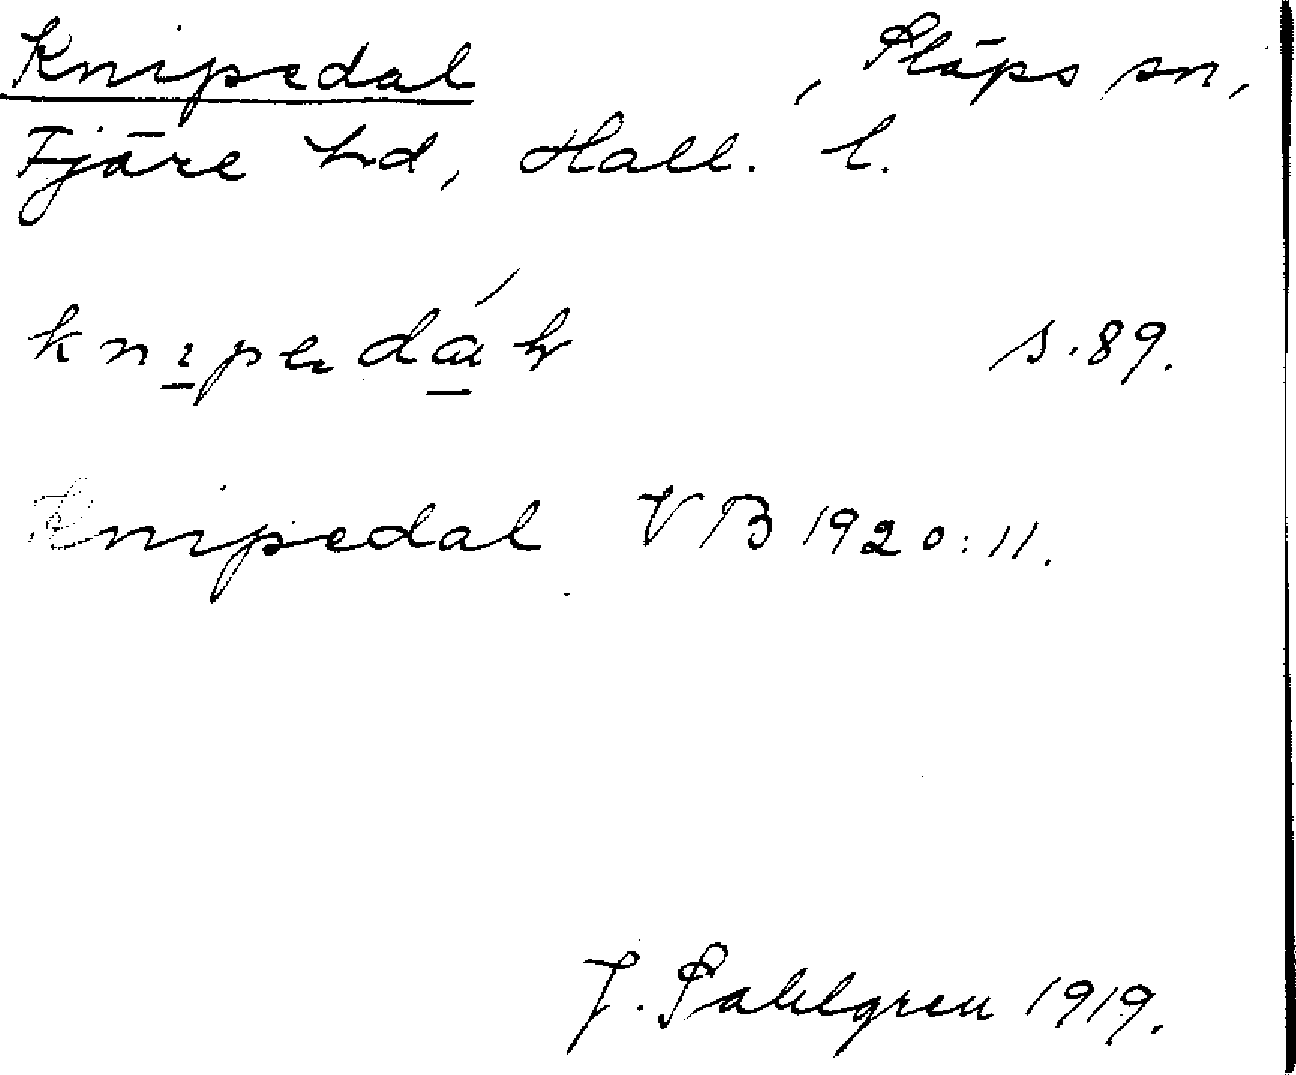 Knipedal , Släps sn,
Fjäre hd, Hall. l.
s. 89.
Knipedal VB 1920:11.
J. Sahlgren 1919.